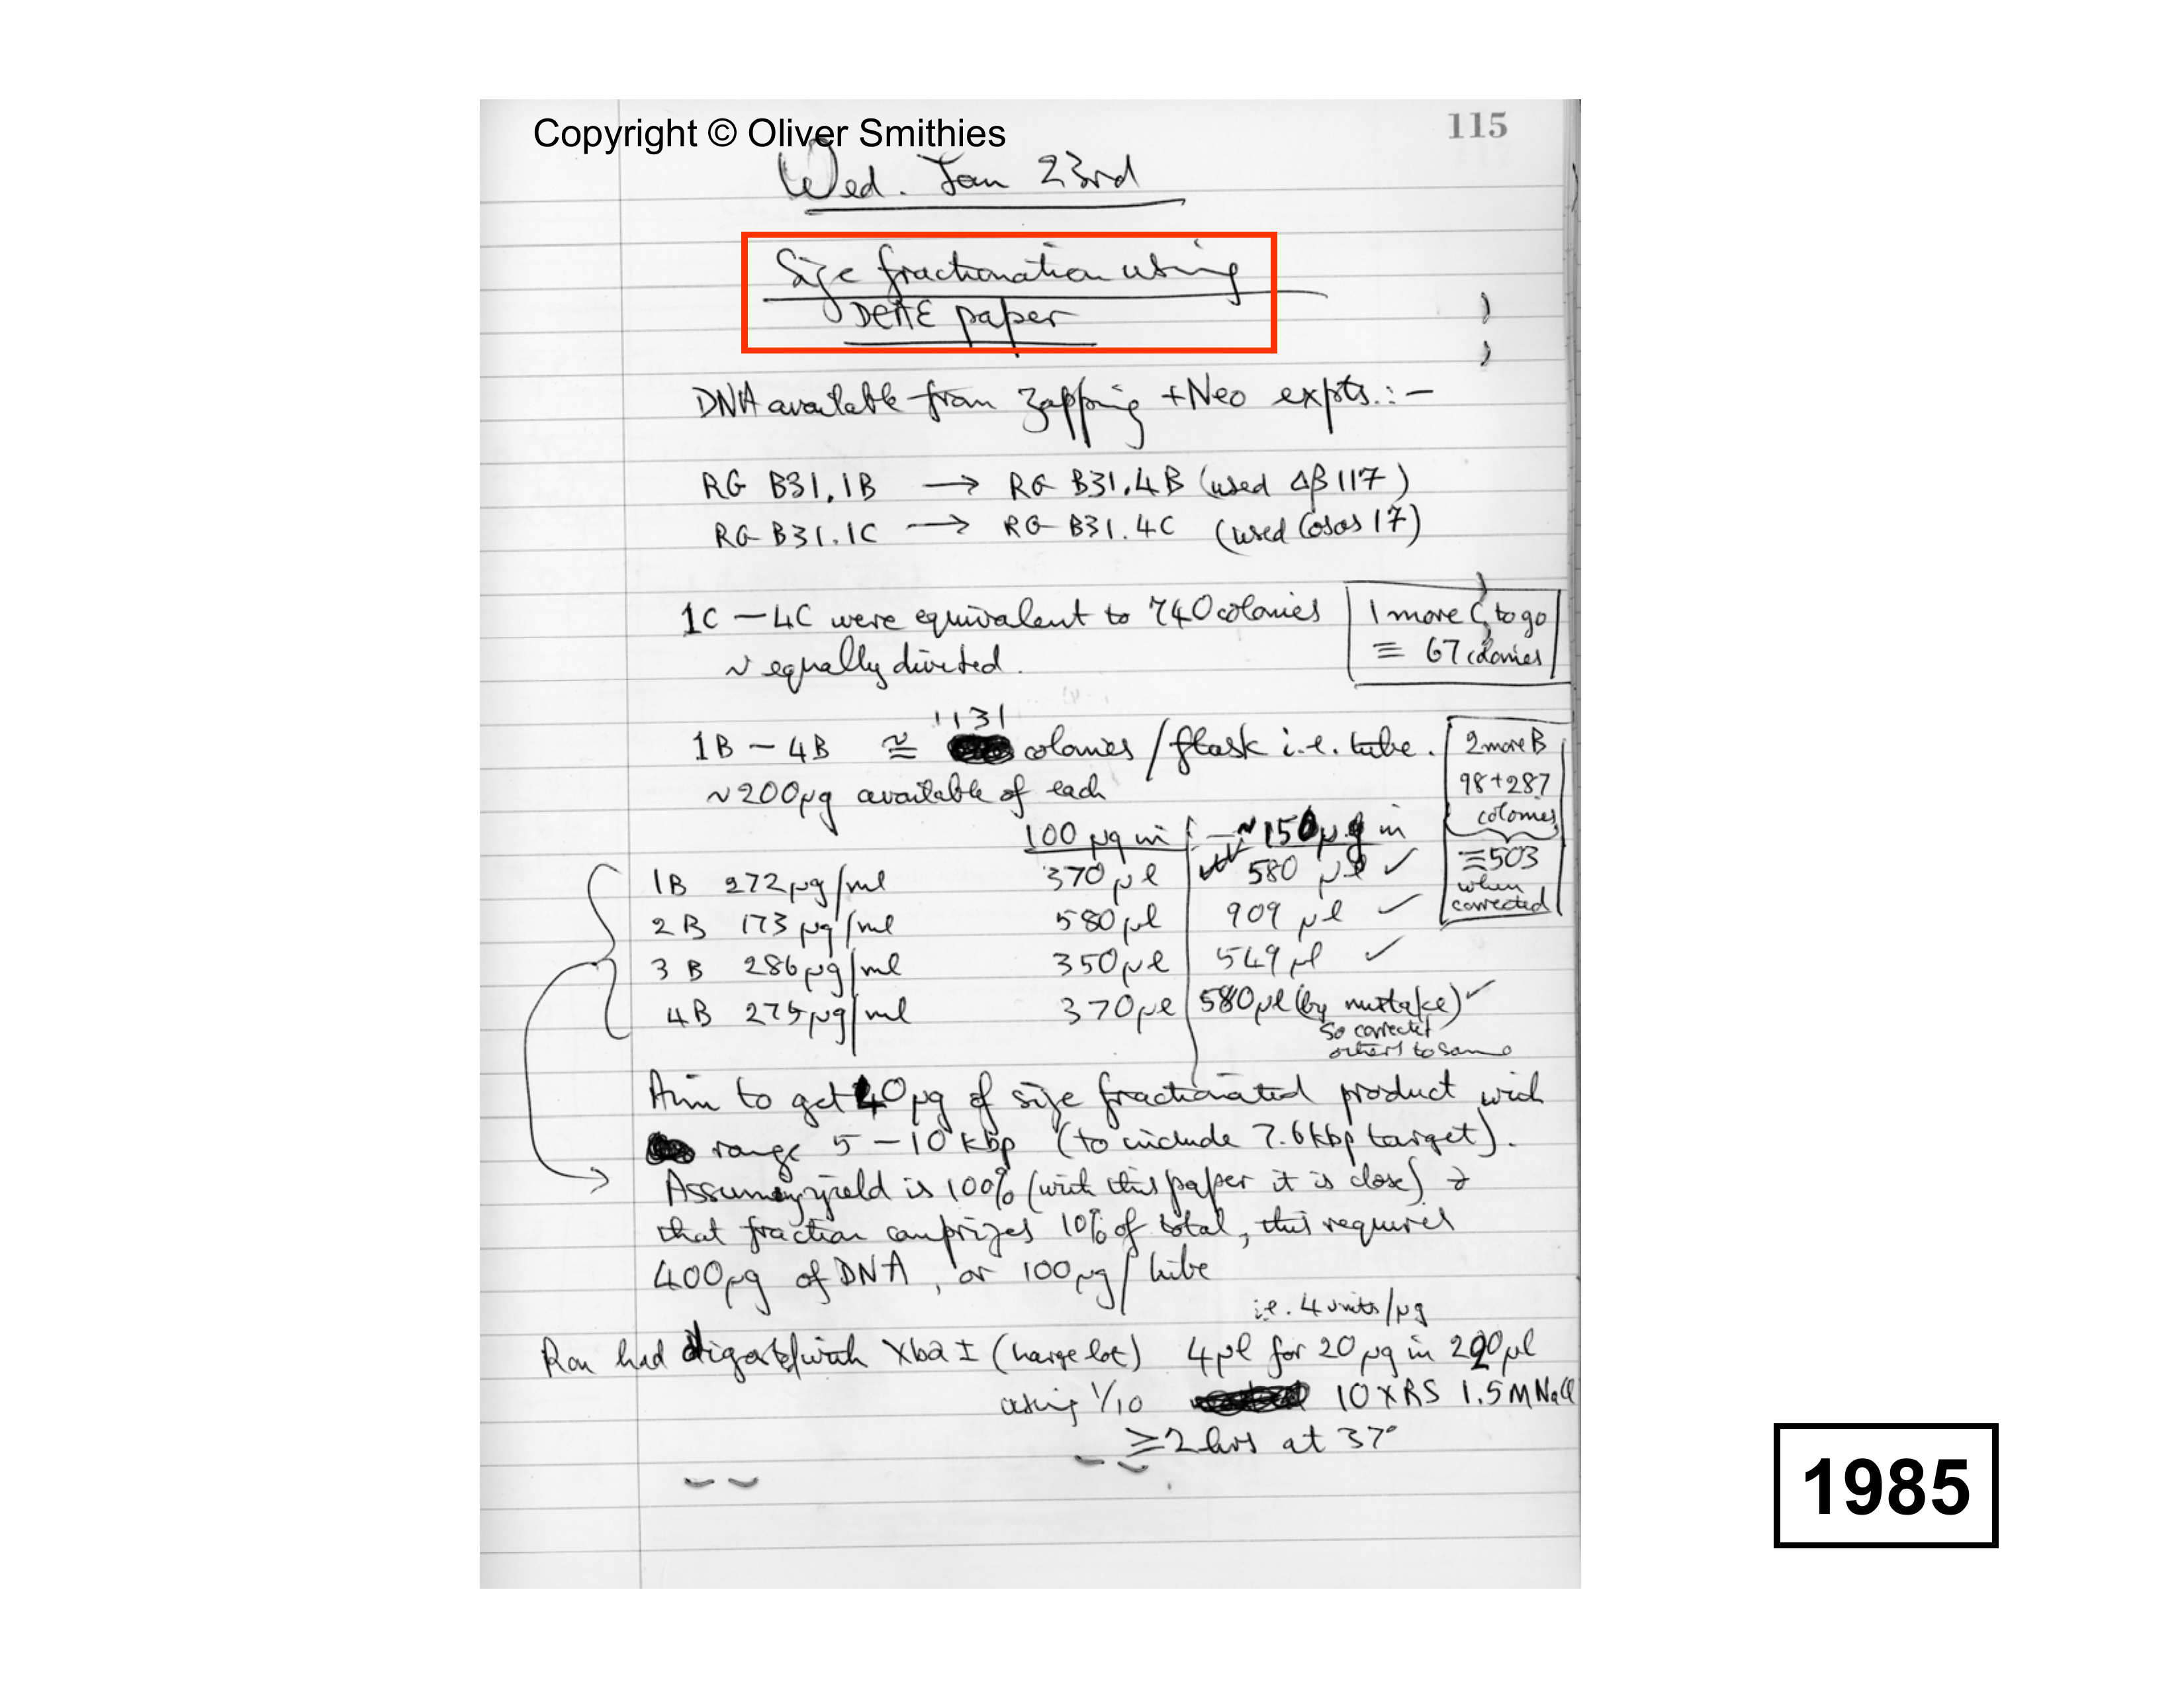 Copyright © Oliver Smithies
115
Wed. Jan 23rd
Size fractionation using
DEAE paper
DNA available from Zapping +Neo expts.:-
RG B31.1B → RG B31.4B (used Δβ117)
RG B31.1C → RG B31.4C (used Cosos 17)
1C - 4C were equivalent to 740 colonies
~ equally divided.
1 more C to go
≡ 67 colonies
1B - 4B ≅ 1131 colonies / flask i.e. tube.
~200µg available of each
2 more B
98+287
colonies
≡503
when
corrected
100 µg in ~150µg in
1B 272µg/ml 370µl 580 µl ✓
2B 173µg/ml 580µl 909 µl ✓
3B 286µg/ml 350µl 549µl ✓
4B 275µg/ml 370µl 580µl (by mistake) ✓
so corrected
others to same
Aim to get 40µg of size fractionated product with
range 5-10 kbp (to include 7.6kbp target).
Assuming yield is 100% (with this paper it is close) &
that fraction comprizes 10% of total, this requires
400µg of DNA, or 100µg/tube
i.e. 4 units/µg
Ron had digested with Xba I (large lot) 4µl for 20µg in 200µl
using 1/10 10 x RS 1.5M NaCl
≥2 hrs at 37°
1985